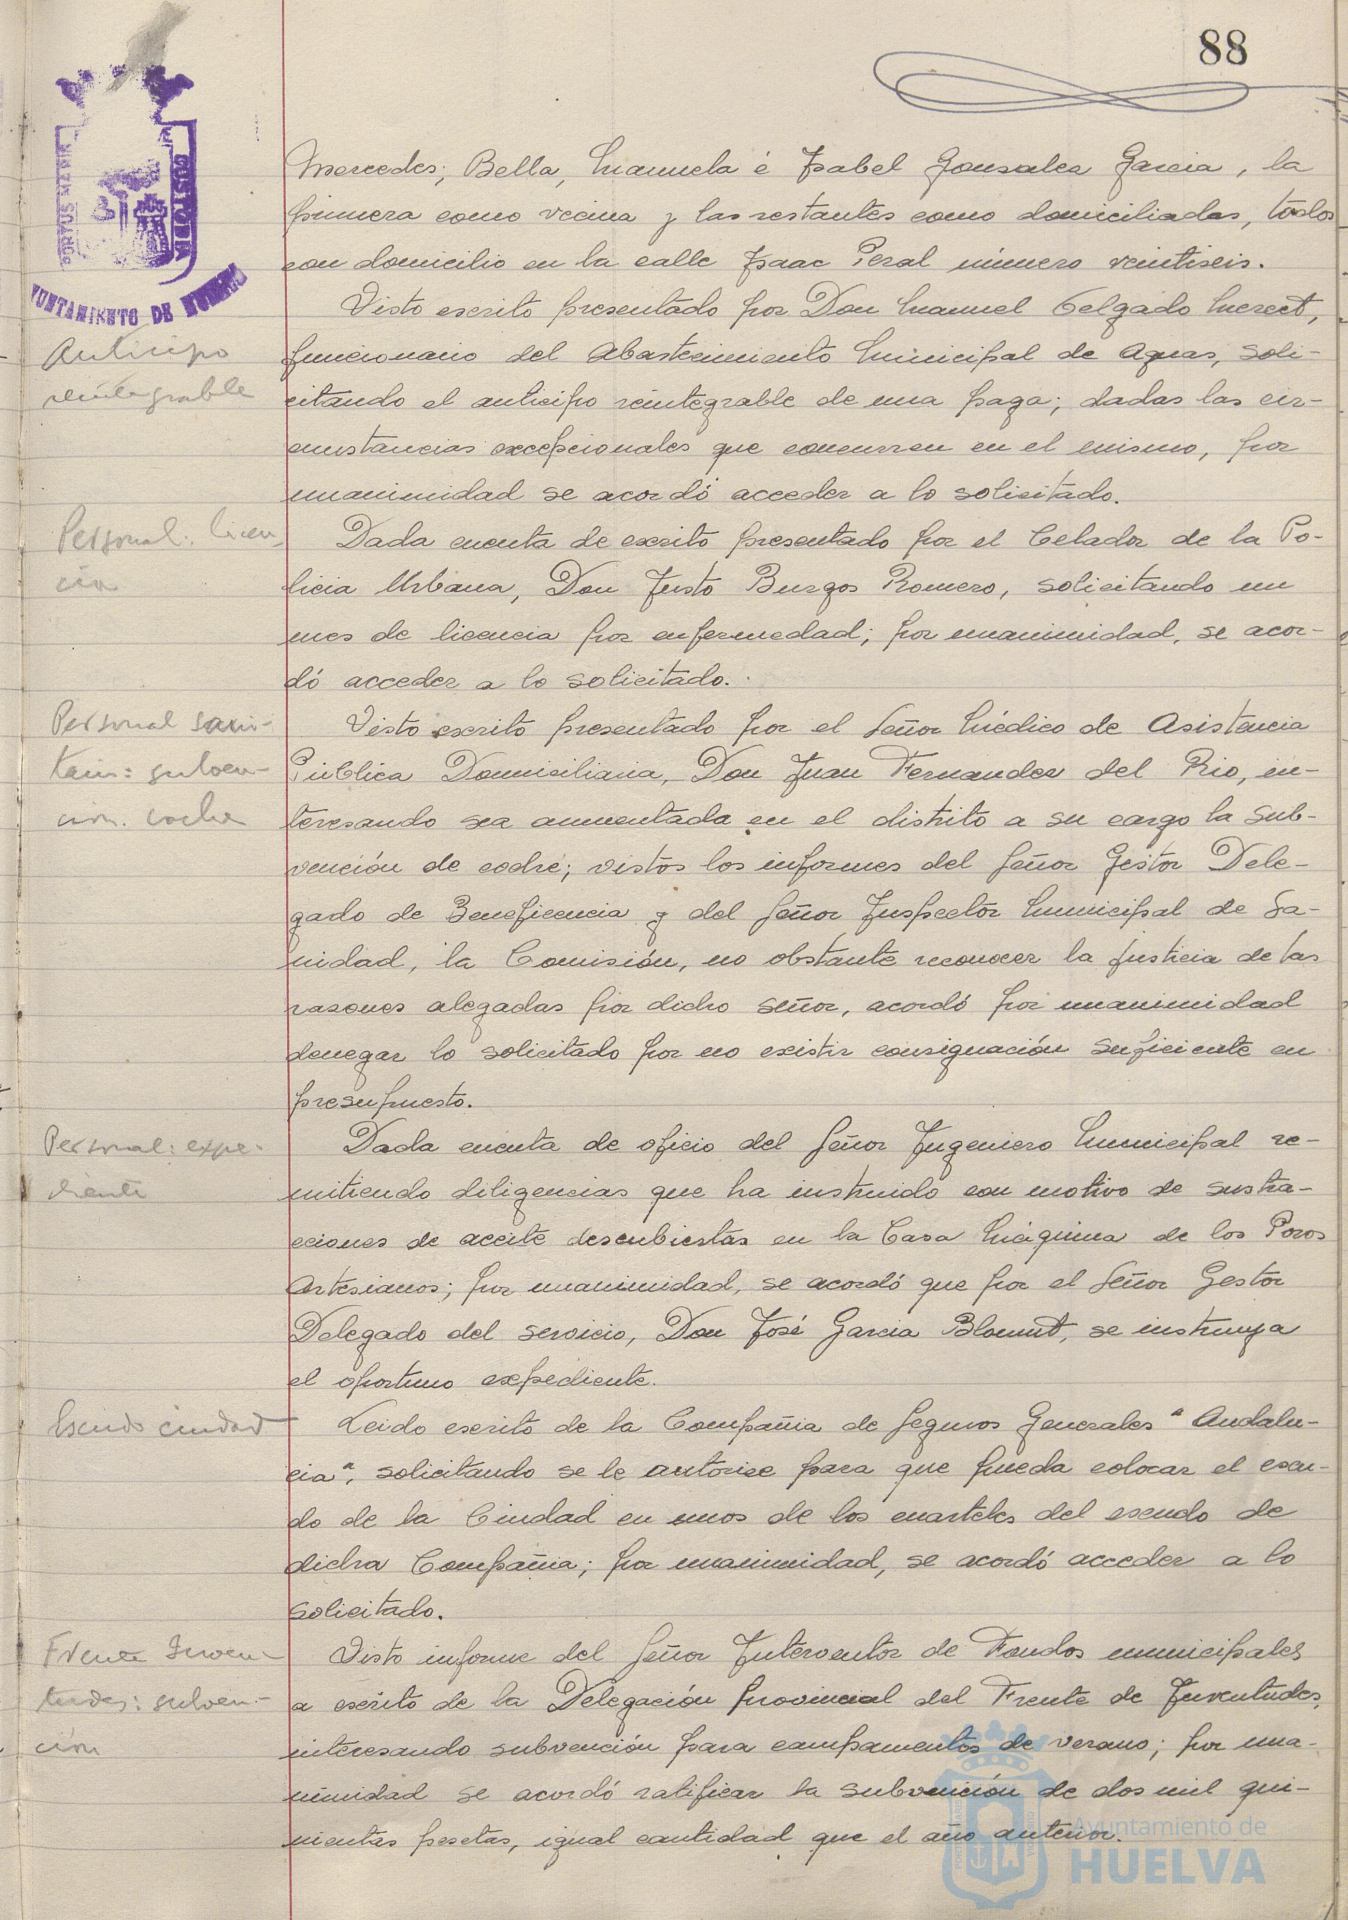 88
PORTUS MARIS
CUSTODIA
AYUNTAMIENTO DE HUELVA
Mercedes; Bella, Manuela é Isabel Gonzalez Garcia, la
primera como vecina y las restantes como domiciliadas, todos
con domicilio en la calle Isaac Peral número veintiseis.
Anticipo
reintegrable
Visto escrito presentado por Don Manuel Delgado
funcionario del Abastecimiento Municipal de Aguas, soli-
citando el anticipo reintegrable de una paga; dadas las cir-
cunstancias excepcionales que concurren en el mismo, por
unanimidad se acordó acceder a lo solicitado.
Personal: licen
cia
Dada cuenta de escrito presentado por el Celador de la Po-
licia Urbana, Don Justo Burgos Romero, solicitando un
mes de licencia por enfermedad; por unanimidad, se acor-
dó acceder a lo solicitado.
Personal sani-
tario: subven-
ción. coche
Visto escrito presentado por el Señor Médico de Asistencia
Pública Domiciliaria, Don Juan Fernandez del Rio, in-
teresando sea aumentada en el distrito a su cargo la sub-
vención de coche; vistos los informes del Señor Gestor Dele-
gado de Beneficencia y del Señor Inspector Municipal de Sa-
nidad, la Comisión, no obstante reconocer la justicia de las
razones alegadas por dicho señor, acordó por unanimidad
denegar lo solicitado por no existir consignación suficiente en
presupuesto.
Personal: expe-
diente
Dada cuenta de oficio del Señor Ingeniero Municipal re-
mitiendo diligencias que ha instruido con motivo de sustra-
cciones de aceite descubiertas en la Casa Máquina de los Pozos
Artesianos; por unanimidad, se acordó que por el Señor Gestor
Delegado del servicio, Don José Garcia Blount, se instruya
el oportuno expediente.
Escudo ciudad
Leido escrito de la Compañia de Seguros Generales "Andalu-
cia", solicitando se le autorice para que pueda colocar el escu-
do de la Ciudad en unos de los cuarteles del escudo de
dicha Compañia; por unanimidad, se acordó acceder a lo
solicitado.
Frente Juven-
tudes: subven-
ción
Visto informe del Señor Interventor de Fondos municipales
a escrito de la Delegación Provincial del Frente de Juventudes,
interesando subvención para campamentos de verano; por una-
nimidad se acordó ratificar la subvención de dos mil qui-
nientas pesetas, igual cantidad que el año anterior.
Ayuntamiento de
HUELVA